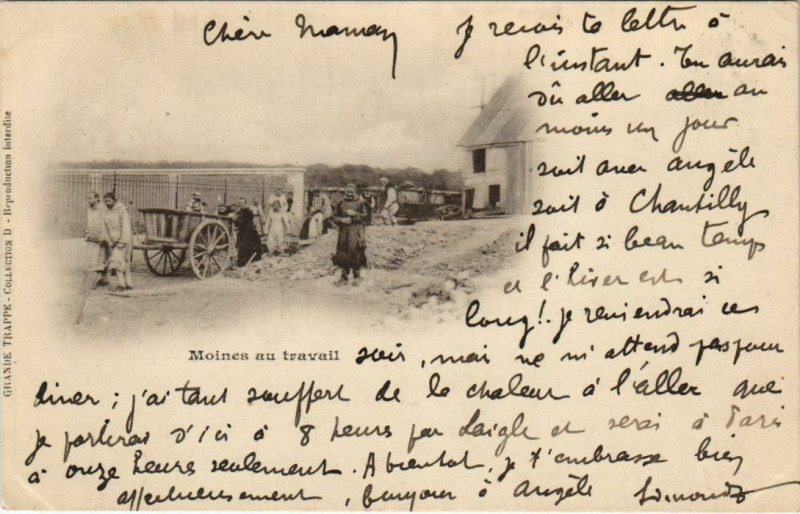 Chère Maman
Je reçois ta lettre à
l'instant. Tu aurais
dû aller au
moins un jour
soit avec angèle
soit à Chantilly
il fait si beau temps
et l'hiver est si
long!. je reviendrai ce
soir, mais ne m'attend pas pour
diner ; j'ai tant souffert de la chaleur à l'aller que
je partirai d'ici à 8 heures par Laigle et serai à Paris
à onze heures seulement. A bientot, je t'embrasse bien
affectueusement, bonjour à Angèle
Moines au travail
GRANDE TRAPPE - COLLECTION D - Reproduction interdite